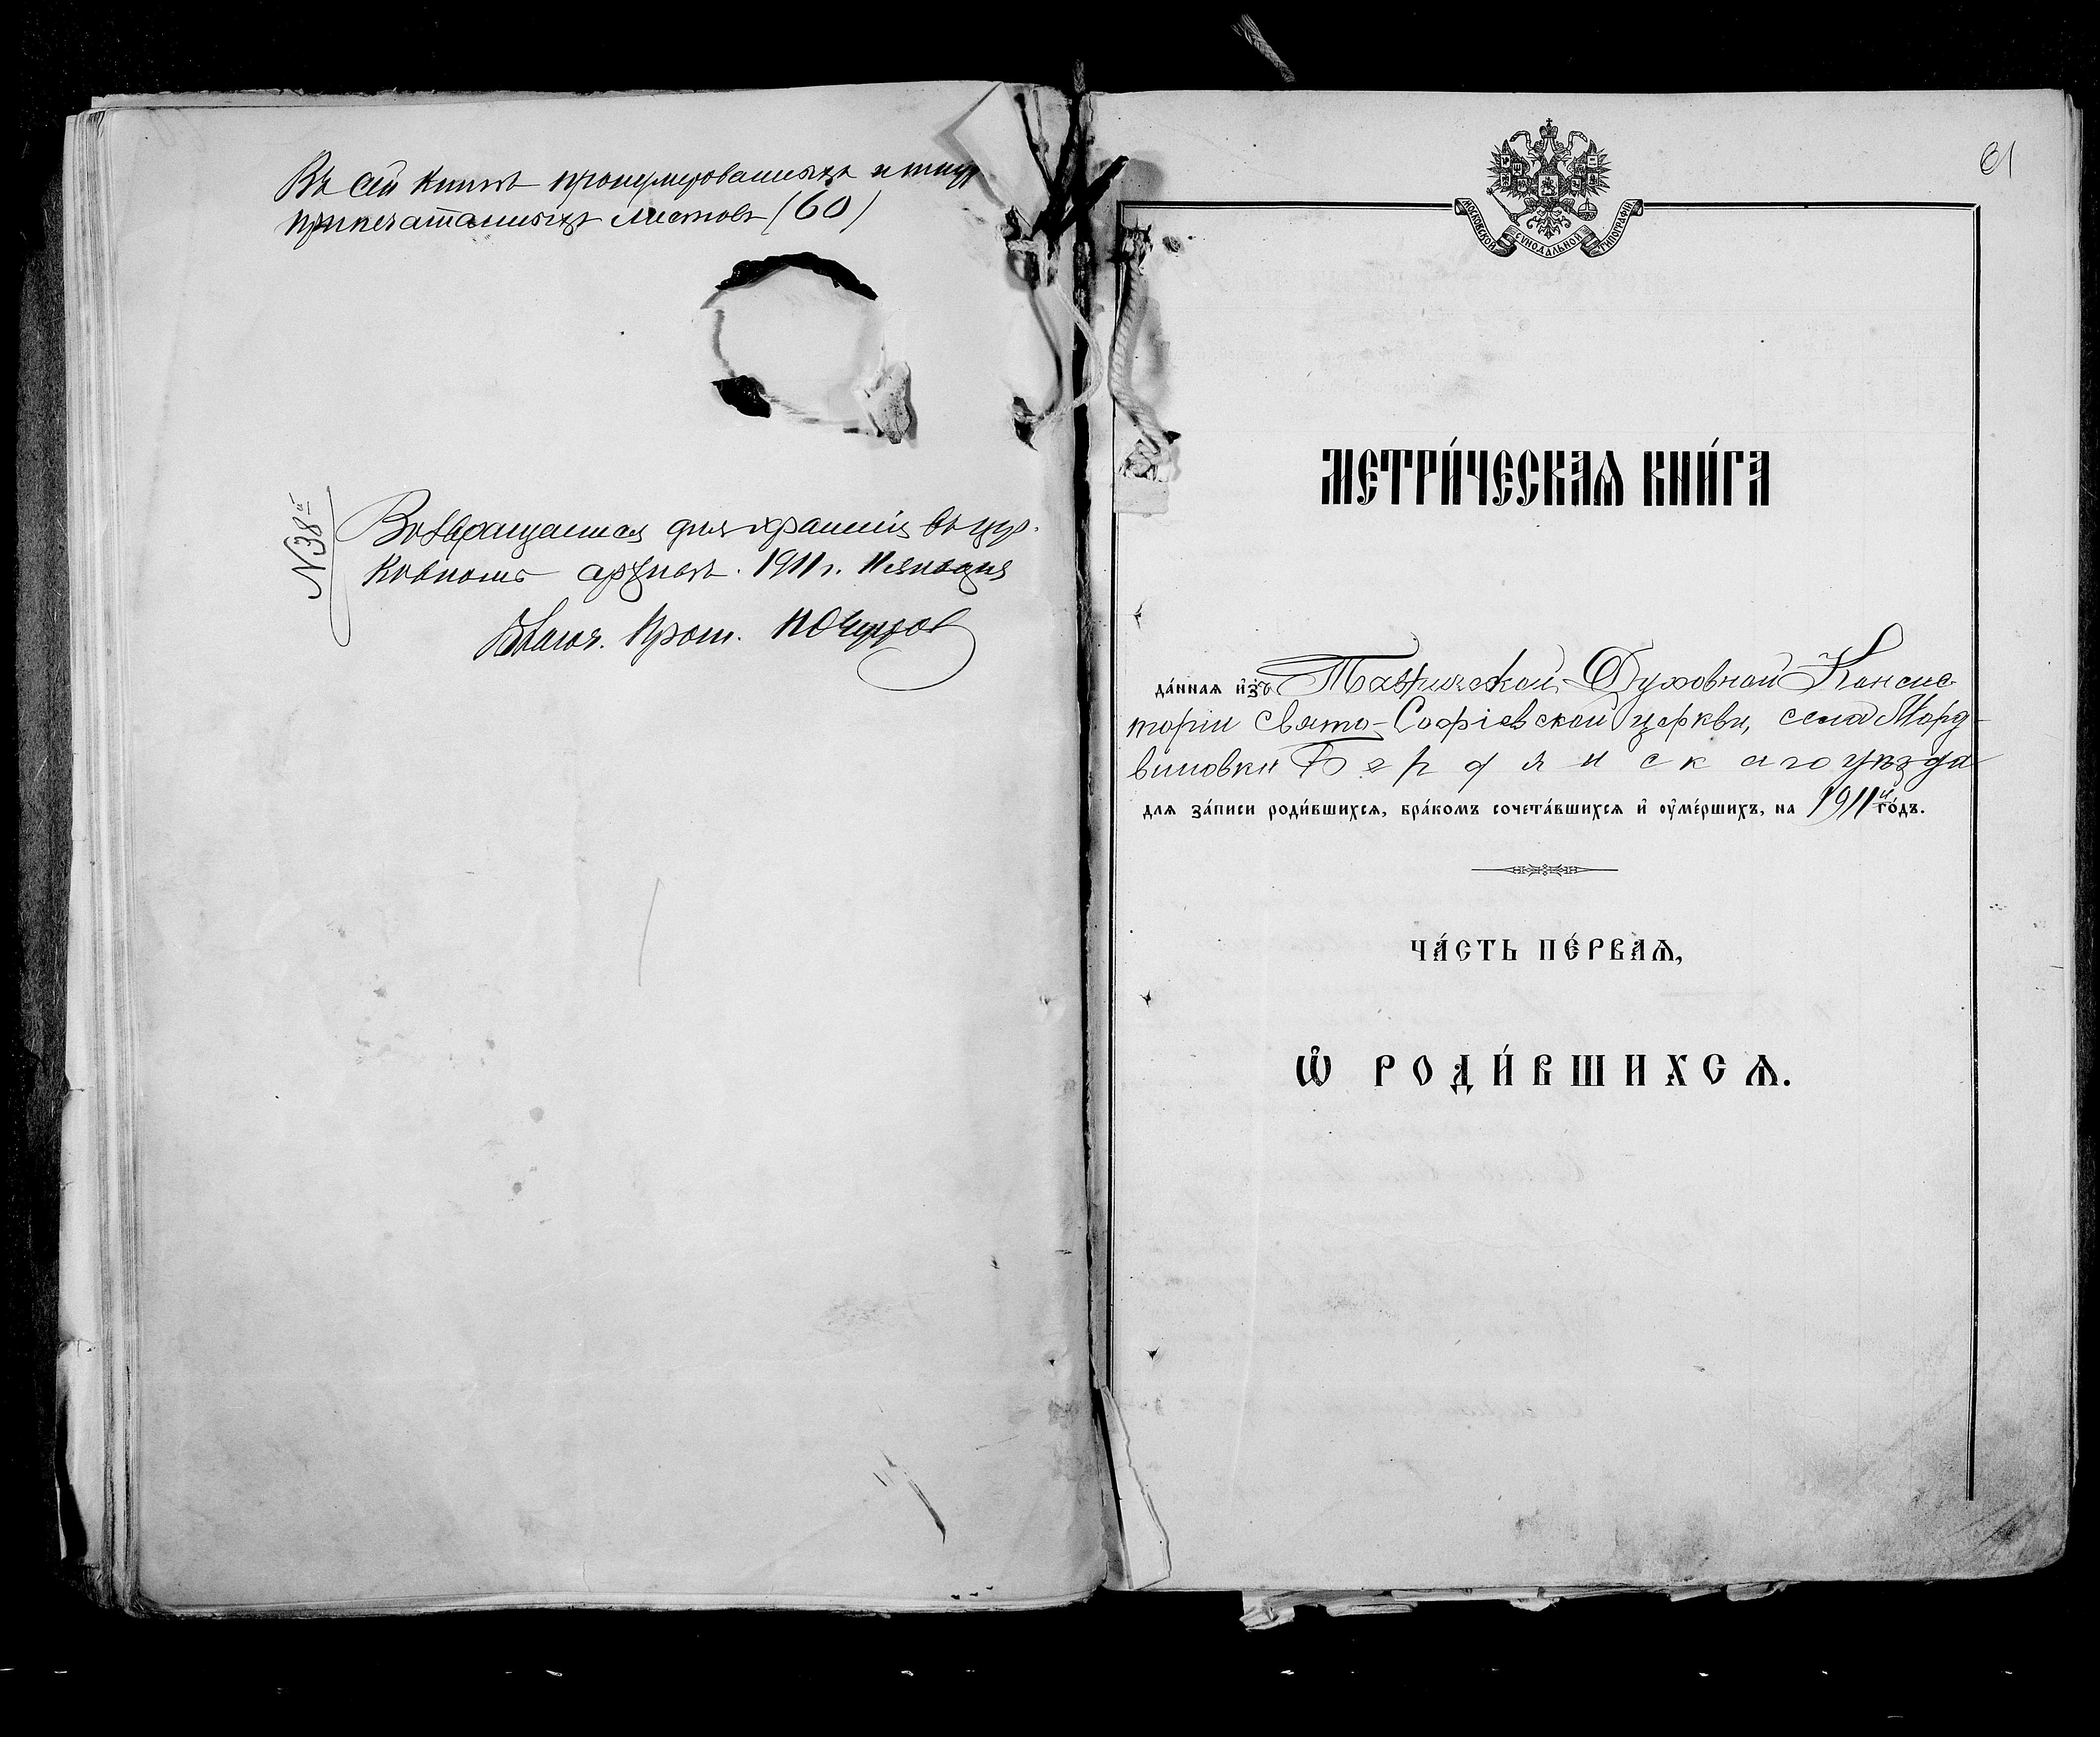 Въ сей книгѣ пронумерованныхъ и
припечатанныхъ листовъ (60)
№38й
Возвращается для храненія въ цер-
ковномъ архивѣ. 1911 г. 11 января
Благоч. Прот.
61
МОСКОВСКОЙ СѴНОДАЛЬНОЙ ТИПОГРАФІИ
МЕТРИ́ЧЕСКАѦ КНИ́ГА
да́ннаѧ и҆зъ Таврической Духовной Консис-
торіи Свято-Софіевской церкви, села Морд-
виновки Бердянскаго уѣзда
для за́писи роди́вшихсѧ, бра́комъ сочета́вшихсѧ и҆ ᲂу҆ме́ршихъ, на 1911й го́дъ.
ЧА́СТЬ ПЕ́РВАѦ,
Ѽ РОДИ́ВШИХСѦ.